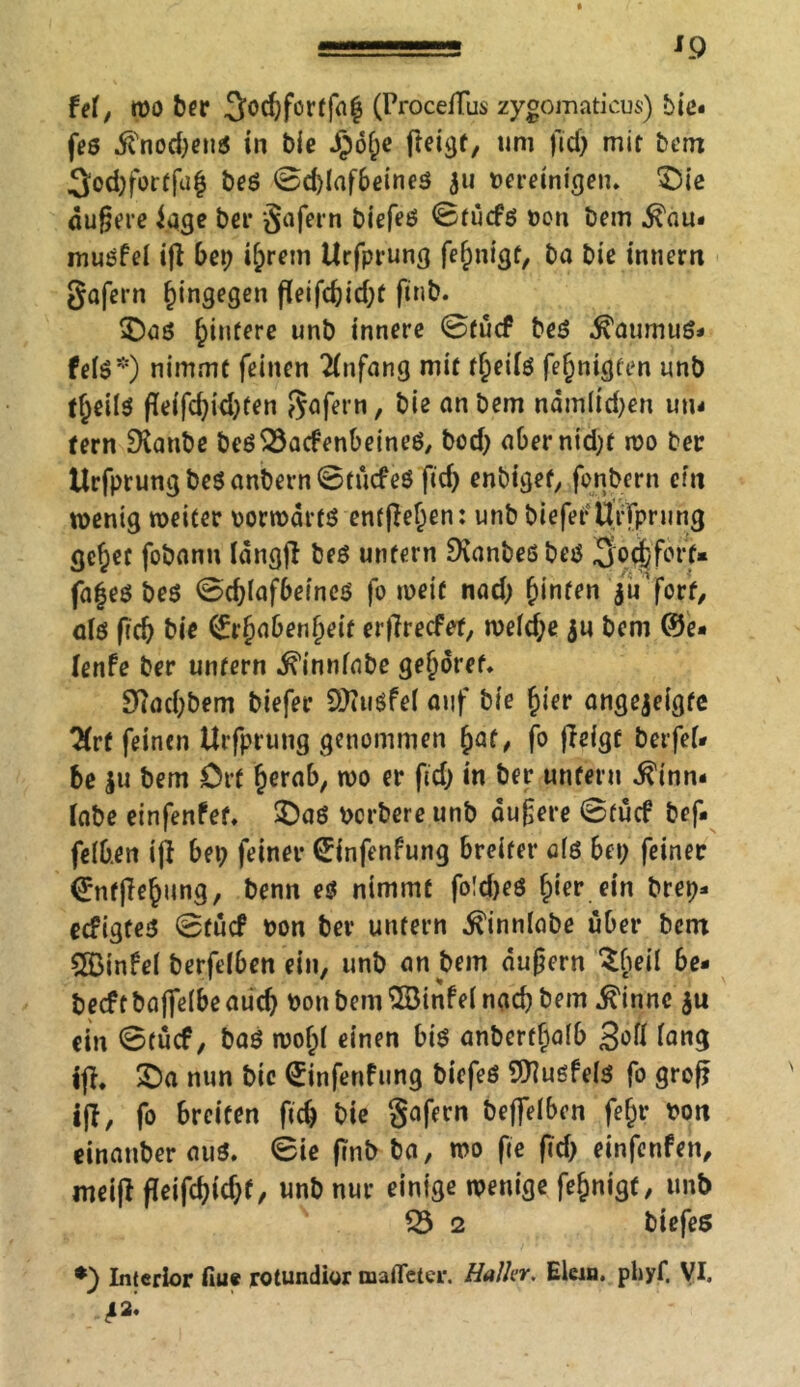 19
kel, wo der Jochfortsatz (Processus zygomaticus) die-
ses Knochens in die Höhe steigt, um sich mit dem
Jochfortsatz des Schlafbeines zu vereinigen. Die
äußere Lage der Fasern dieses Stücks von dem Kau-
muskel ist bey ihrem Ursprung sehnigt, da die innern
Fasern hingegen fleischicht sind.
Das hintere und innere Stück des Kaumus-
kels*) nimmt seinen Anfang mit theils sehnigten und
theils fleischichten Fasern, die an dem nämlichen un-
tern Rande des Backenbeines, doch aber nicht wo der
Ursprung des andern Stückes sich endiget, sondern ein
wenig weiter vorwärts entstehen: und dieser Ursprung
gehet sodann längst des untern Randes des Jochfort-
satzes des Schlafbeines so weit nach hinten zu fort,
als sich die Erhabenheit erstrecket, welche zu dem Ge-
lenke der untern Kinnlade gehöret.
Nachdem dieser Muskel auf die hier angezeigte
Art seinen Ursprung genommen hat, so steigt dersel-
be zu dem Ort herab, wo er sich in der untern Kinn-
lade einsenket. Das vordere und äußere Stück des-
selben ist bey seiner Einsenkung breiter als bey seiner
Entstehung, denn es nimmt solches hier ein drey-
eckigtes Stück von der untern Kinnlade über dem
Winkel derselben ein, und an dem äußern Theil be-
deckt dasselbe auch von dem Winkel nach dem Kinne zu
ein Stück, das wohl einen bis anderthalb Zoll lang
ist. Da nun die Einsenkung dieses Muskels so groß
ist, so breiten sich die Fasern desselben sehr von
einander aus. Sie sind da, wo sie sich einsenken,
meist fleischicht, und nur einige wenige sehnigt, und
B 2 dieses
*) Interior siue rotundior masseter. Haller. Elem. phys. VI.
12.